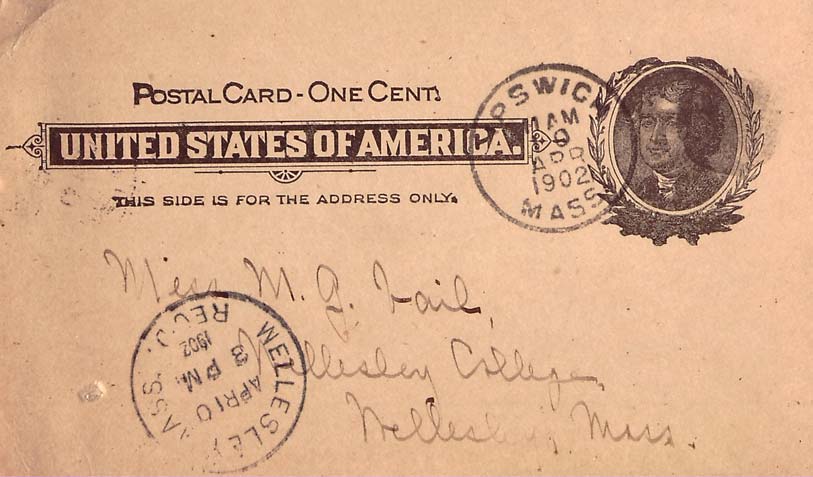 POSTAL CARD - ONE CENT.
UNITED STATES OF AMERICA.
THIS SIDE IS FOR THE ADDRESS ONLY.
IPSWICH
1 AM
9
APR
1902
MASS
Miss M. G. Vail,
Wellesley College,
Wellesley, Mass.
WELLESLEY
MASS.
REC'D.
1902
3 PM
APR 10